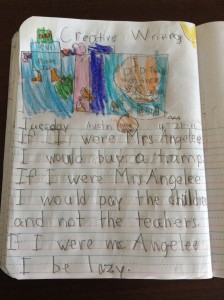 Creative Writing
Tuesday Austin
If I were Mrs Angelee
I would buy a tramp
If I were Mrs Angelee
I would pay the children
and not the teachers.
If I were ms Angelee
I be lazy.